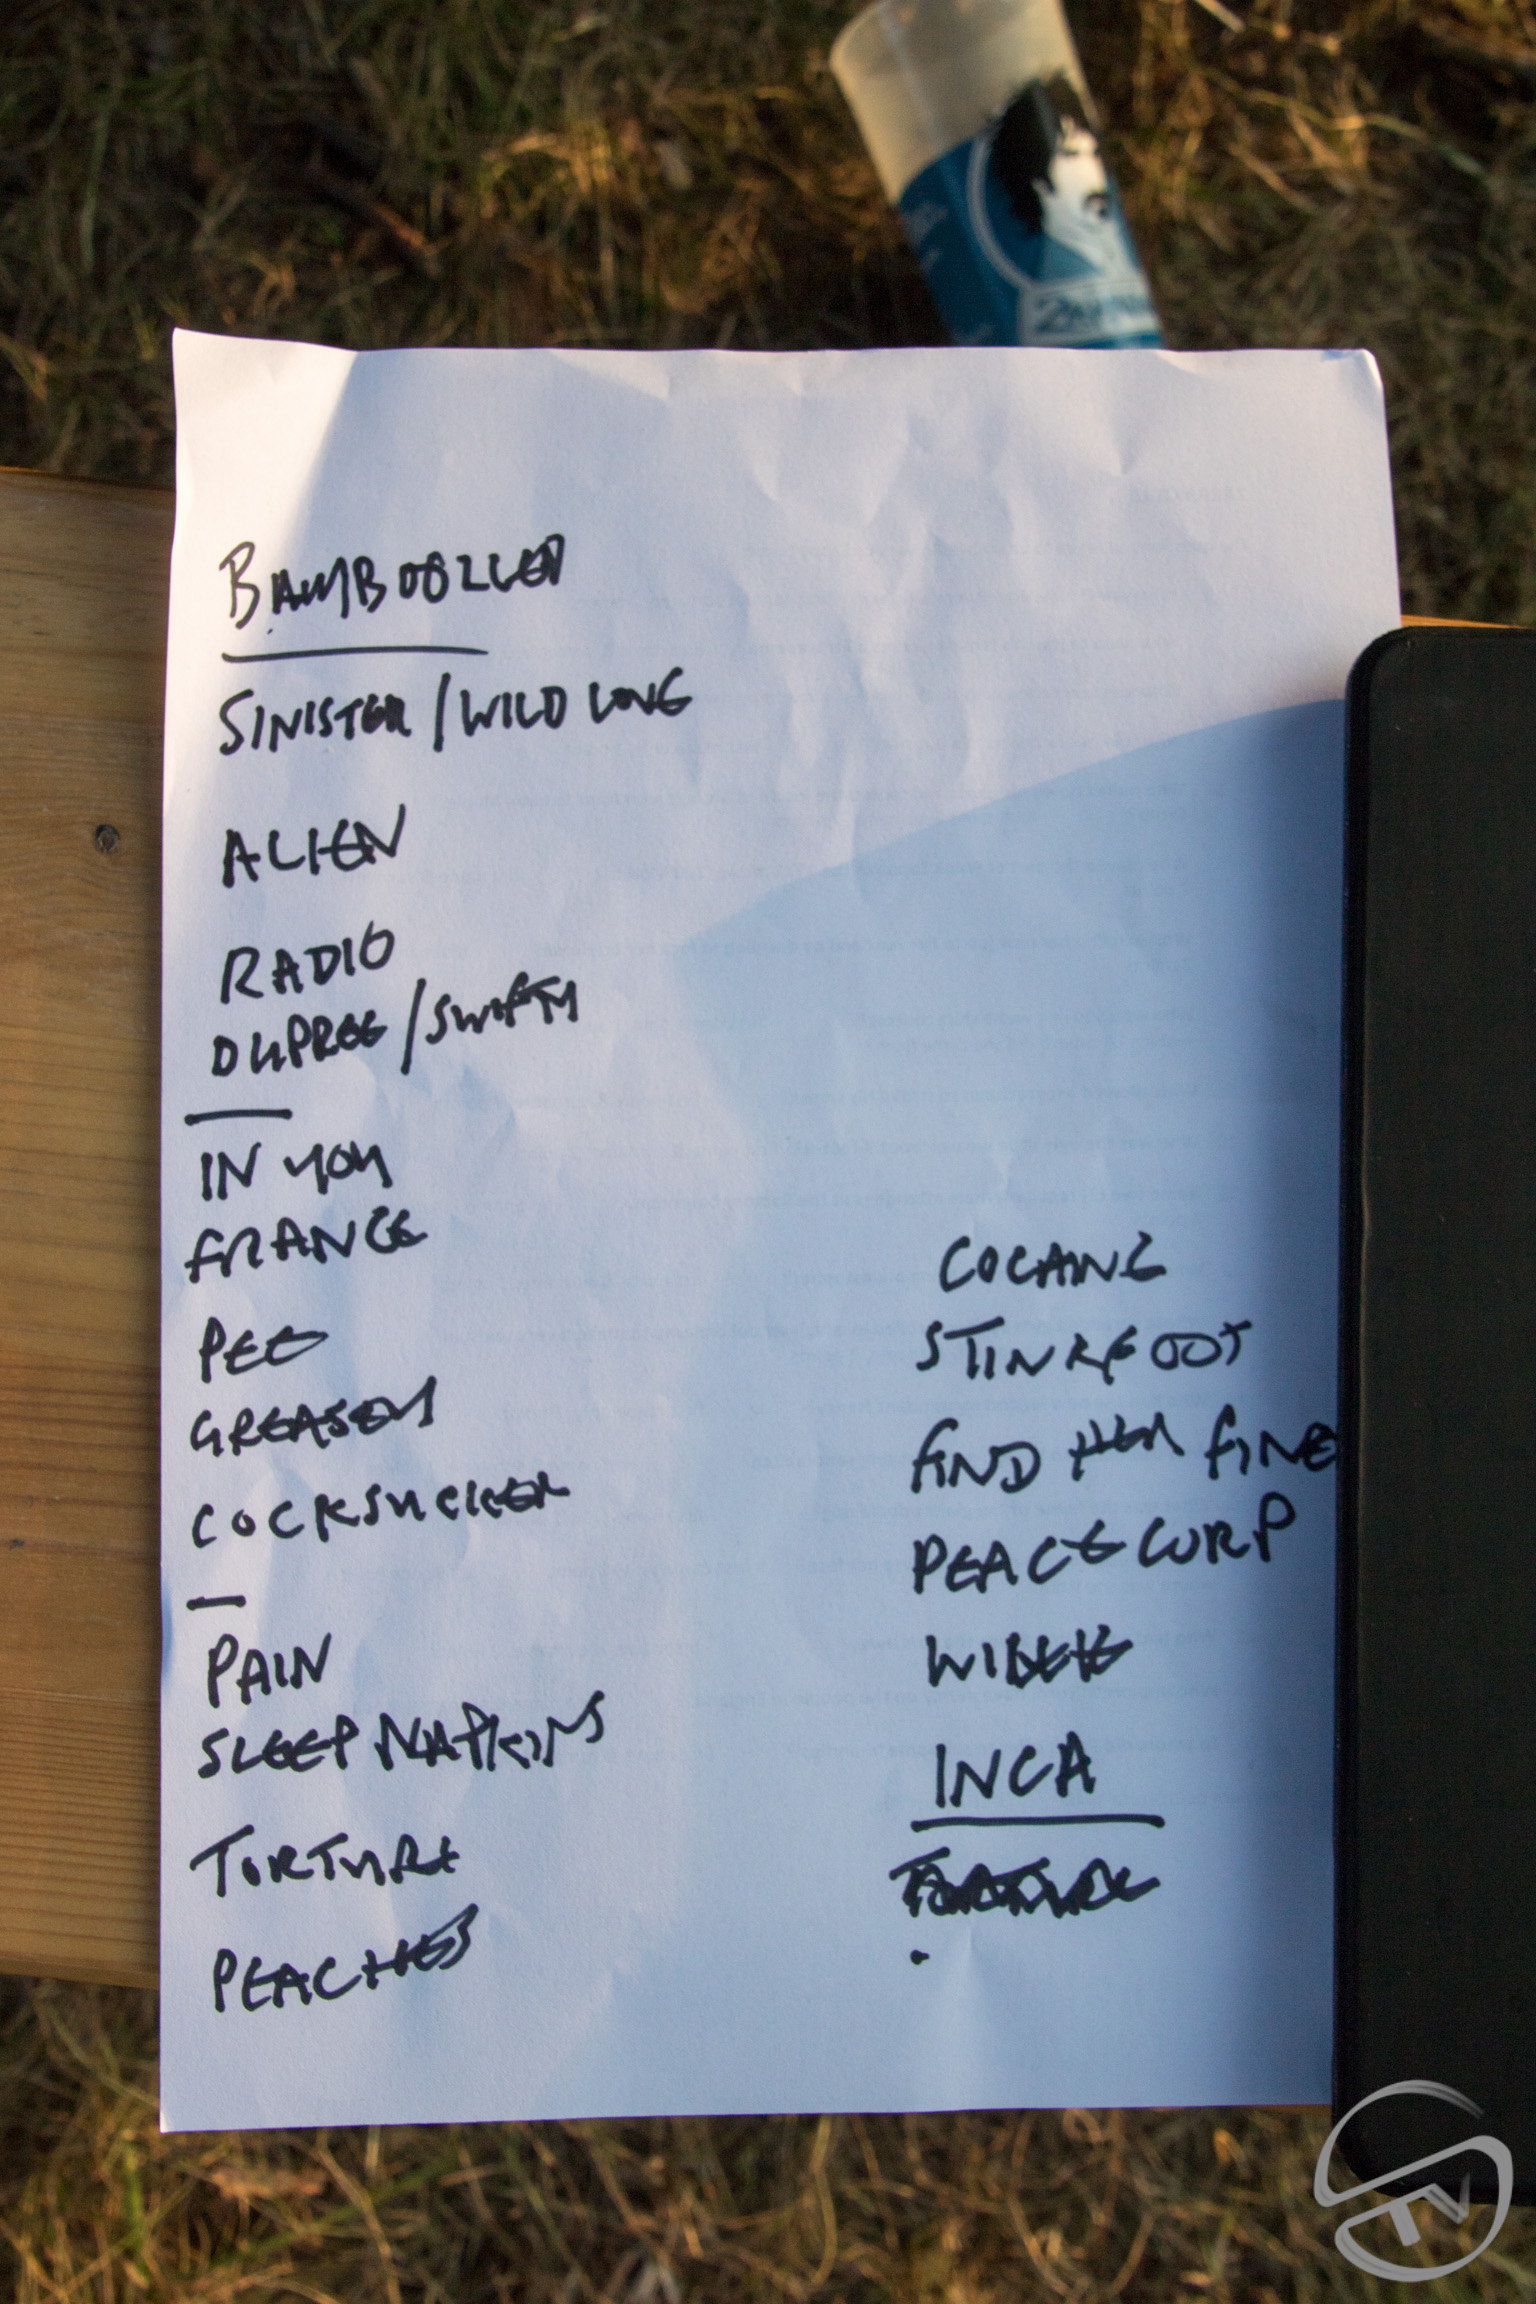 BAMBOOZLED
SINISTER / WILD LOVE
ALIEN
RADIO
DUPREE / SWIFTY
IN YOU
FRANCE
PEE
GREASEY
COCKSUCKER
PAIN
SLEEP NAPKINS
TORTURE
PEACHES
COCAINE
STINKFOOT
FIND HER FINE
PEACE CORP
INCA
TORTURE